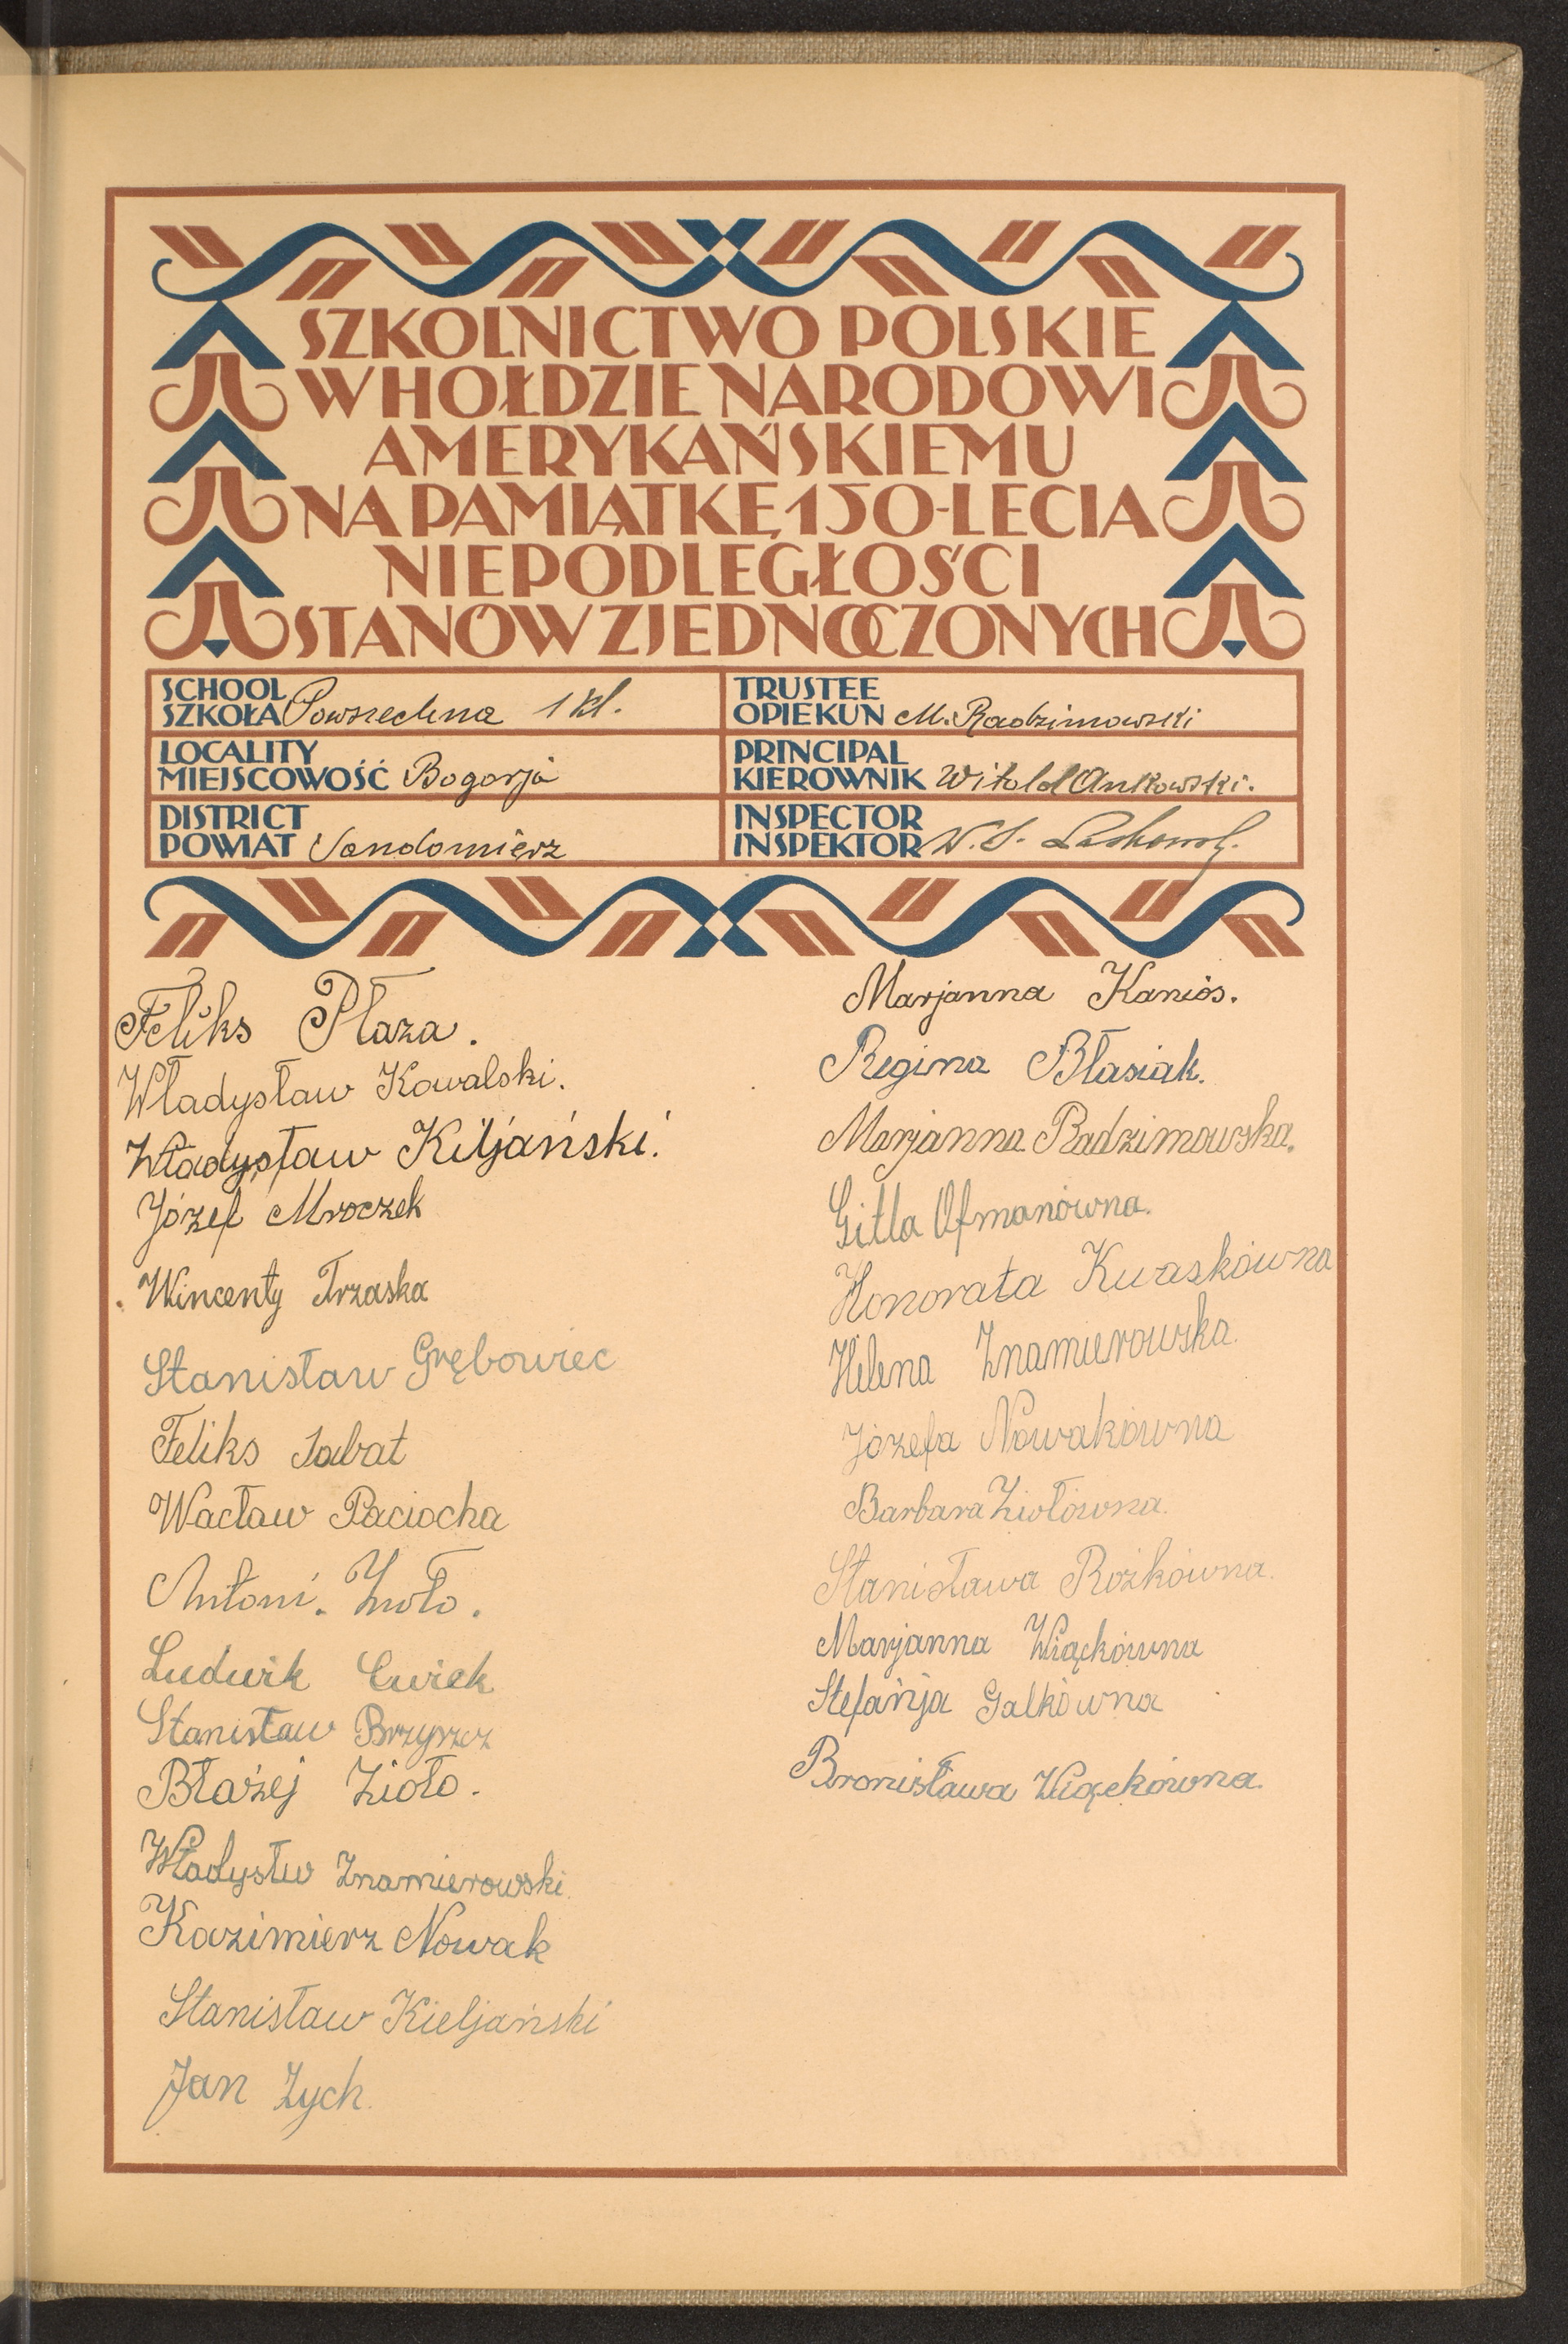 SZKOLNICTWO POLSKIE
W HOŁDZIE NARODOWI
AMERYKAŃSKIEMU
NA PAMIĄTKĘ 150-LECIA
NIEPODLEGŁOŚCI
STANÓW ZJEDNOCZONYCH
SCHOOL
SZKOŁA Powszechna 1 kl.
LOCALITY
MIEJSCOWOŚĆ Bogorja
DISTRICT
POWIAT Sandomierz
TRUSTEE
OPIEKUN M. Radzimowski
PRINCIPAL
KIEROWNIK Witold Ankowski.
INSPECTOR
INSPEKTOR W. S.
Feliks Płaza.
Władysław Kowalski.
Władysław Kiljański.
Józef Mroczek
Wincenty Trzaska
Stanisław Grębowiec
Feliks Sabat
Wacław Paciocha
Antoni. Zioło.
Ludwik Cwiek
Stanisław Brzyszcz
Błażej Zioło.
Władysłw Znamierowski
Kazimierz Nowak
Stanisław Kieljański
Jan Zych.
Marjanna Kaniós.
Regina Błasiak.
Marjanna Radzimowska.
Gitla Ofmanówna.
Honorata Kwaskówna
Helena Znamierowska.
Józefa Nowakówna
Barbara Ziołówna.
Stanisława Rożkówna.
Marjanna Wiąckówna
Stefańja Galkówna
Bronisława Wiącekówna.